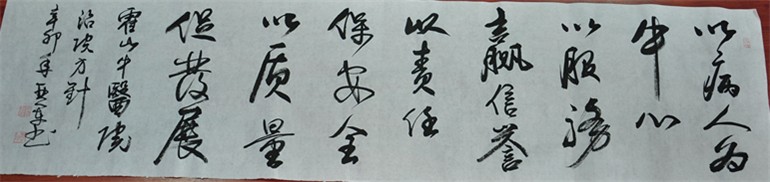 以病人为
中心
以服務
赢信誉
以责任
保安全
以质量
促發展
霍山中醫院
治院方針
辛卯年书